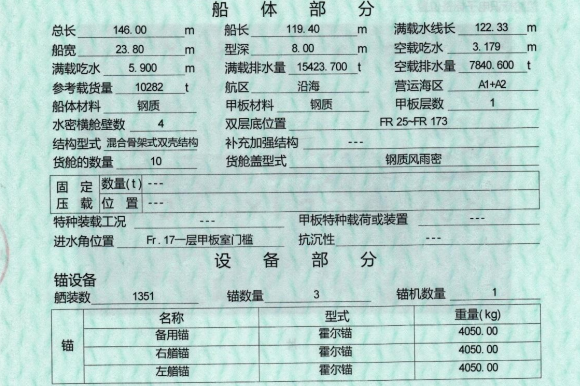 船体部分
总长 146.00 m 船长 119.40 m 满载水线长 122.33 m
船宽 23.80 m 型深 8.00 m 空载吃水 3.179 m
满载吃水 5.900 m 满载排水量 15423.700 t 空载排水量 7840.600 t
参考载货量 10282 t 航区 沿海 营运海区 A1+A2
船体材料 钢质 甲板材料 钢质 甲板层数 1
水密横舱壁数 4 双层底位置 FR 25~FR 173
结构型式 混合骨架式双壳结构 补充加强结构 ---
货舱的数量 10 货舱盖型式 钢质风雨密
固定 数量(t) ---
压载 位置 ---
特种装载工况 --- 甲板特种载荷或装置 ---
进水角位置 Fr.17一层甲板室门槛 抗沉性 ---
设备部分
锚设备
舾装数 1351 锚数量 3 锚机数量 1
锚 名称 型式 重量(kg)
备用锚 霍尔锚 4050.00
右艏锚 霍尔锚 4050.00
左艏锚 霍尔锚 4050.00